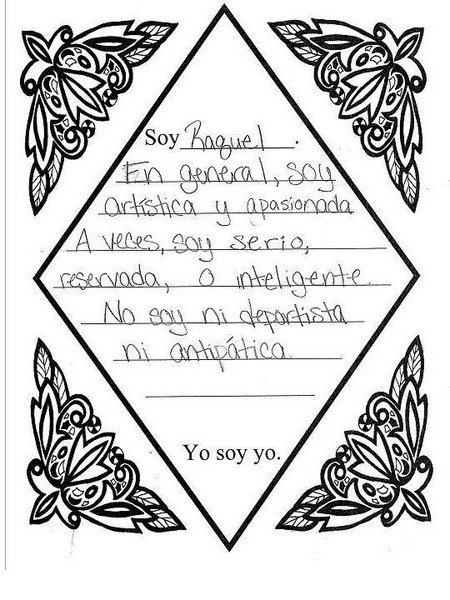 Soy Raquel.
En general, soy
artística y apasionada
A veces, soy serio,
reservada, o inteligente.
No soy ni deportista
ni antipática
Yo soy yo.